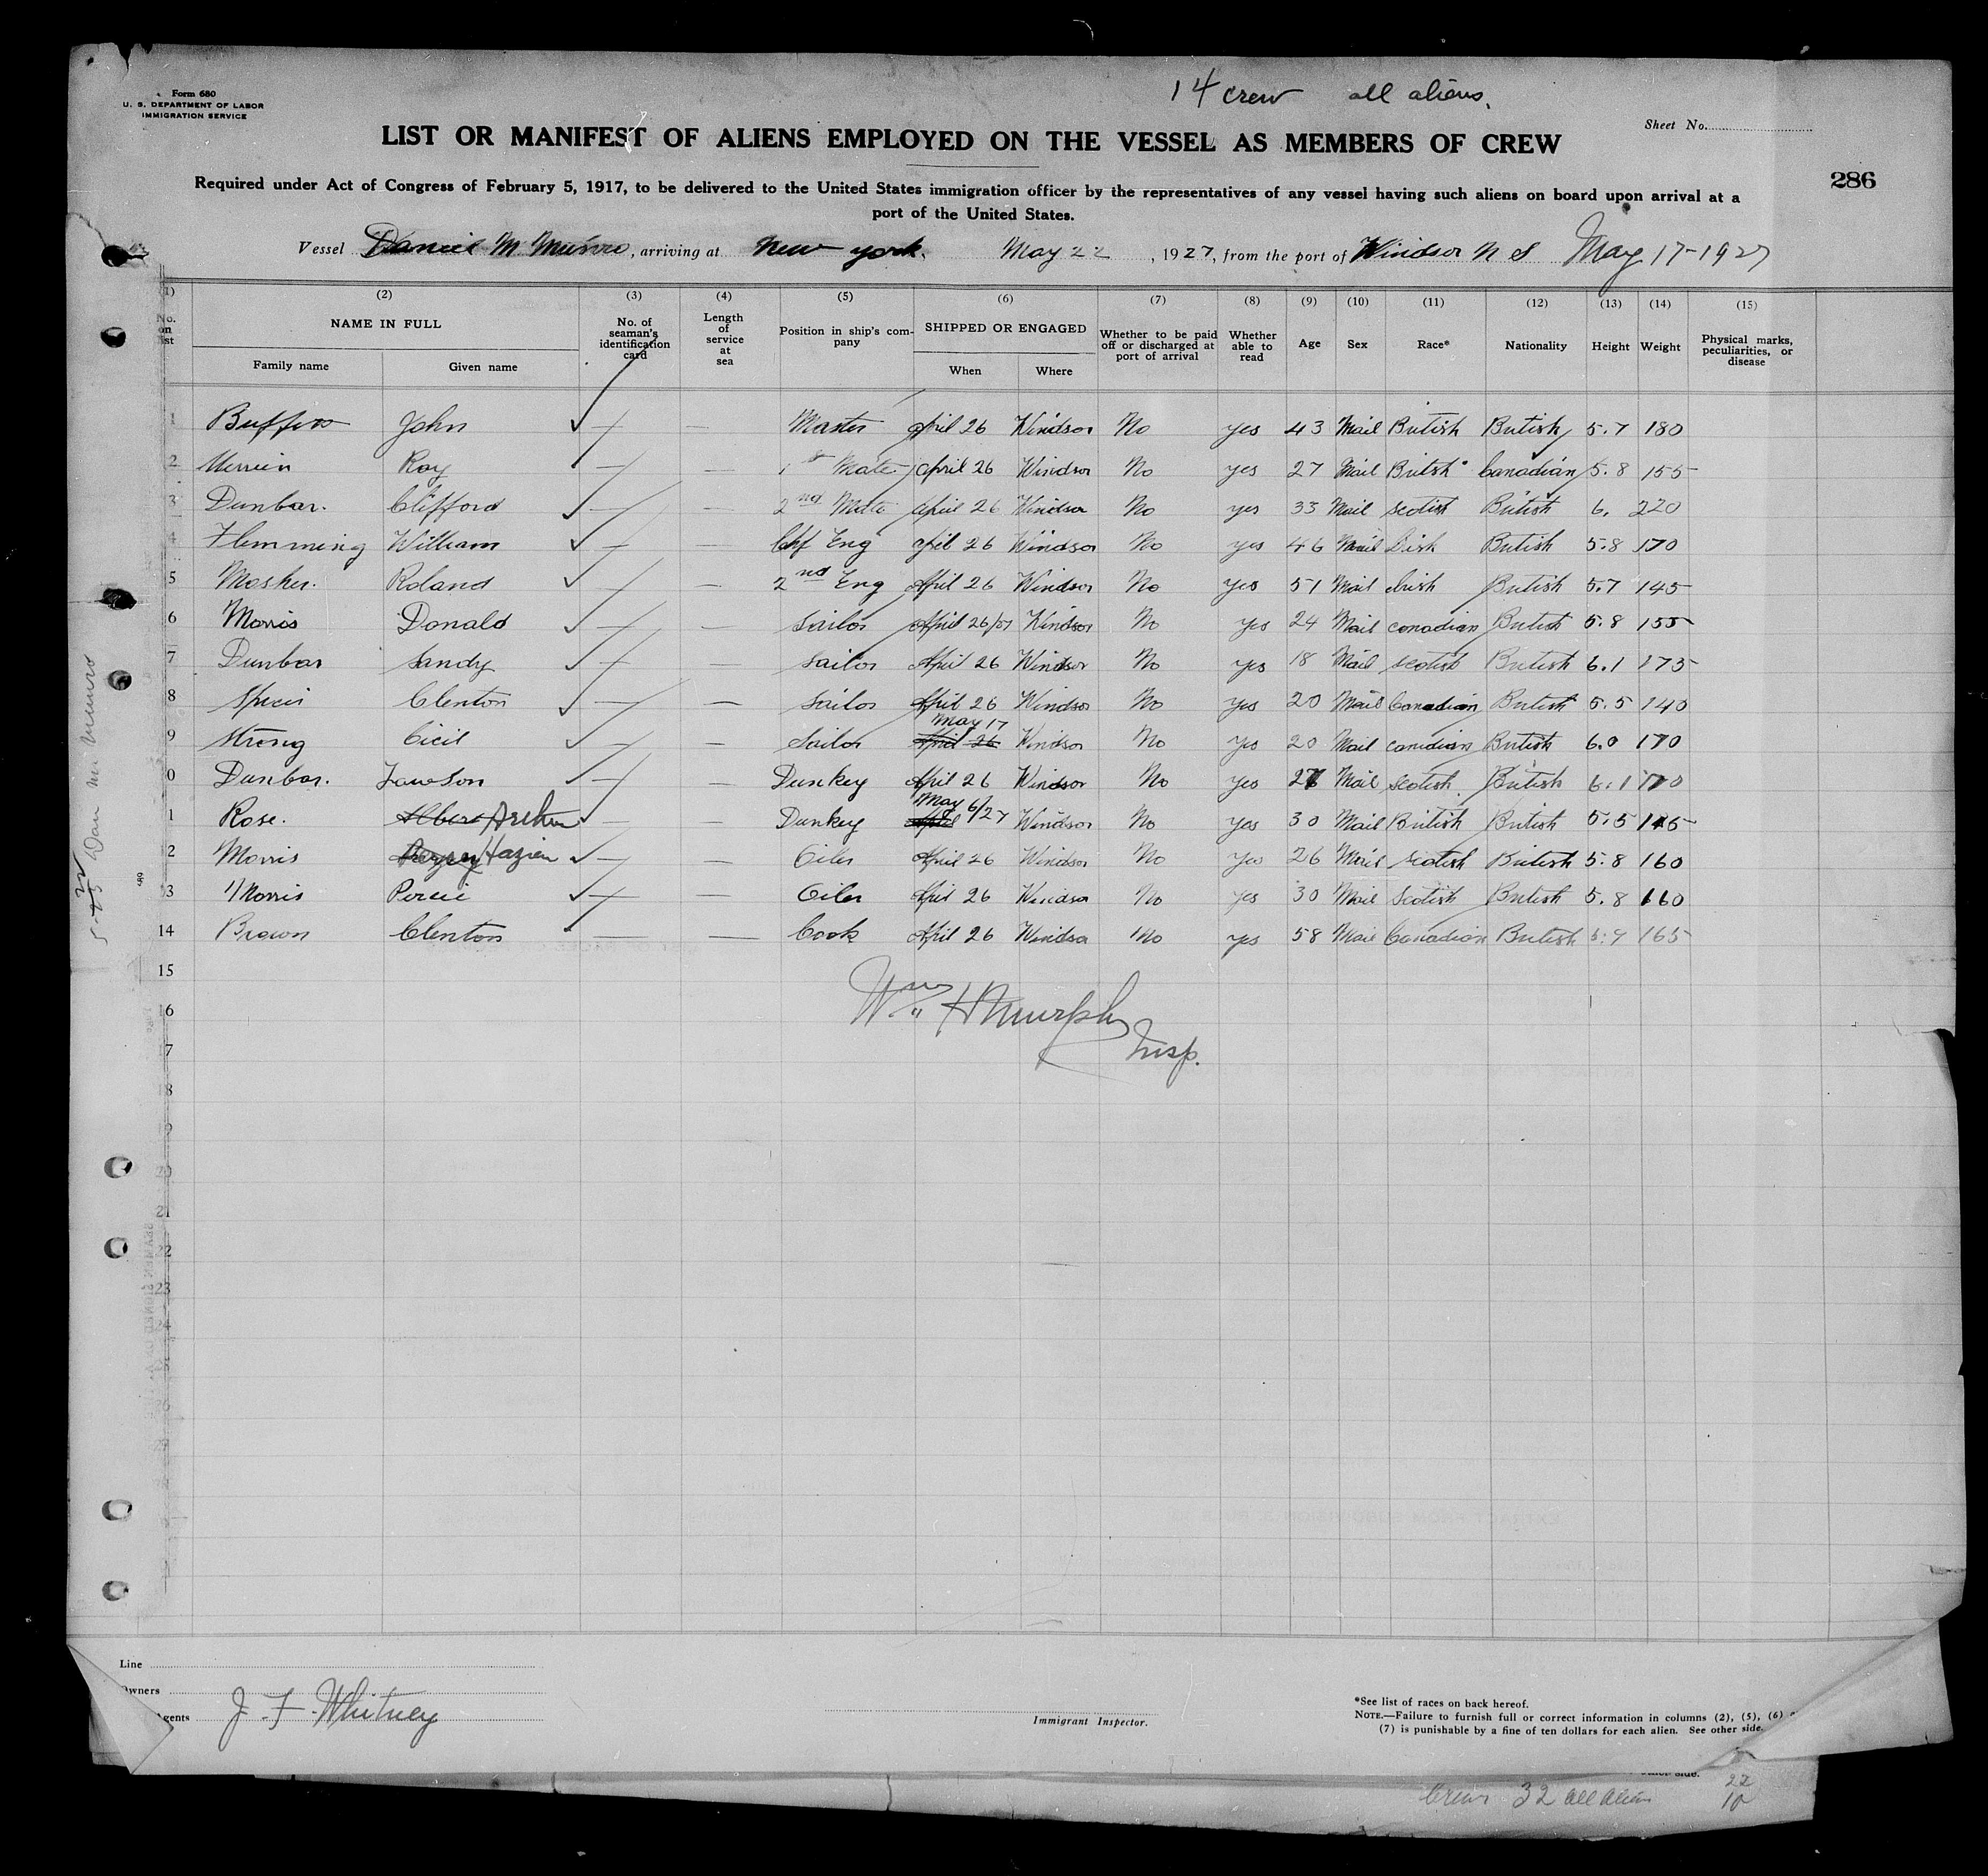 14 crew all aliens.
Form 680
U. S. DEPARTMENT OF LABOR
IMMIGRATION SERVICE
Sheet No.
LIST OR MANIFEST OF ALIENS EMPLOYED ON THE VESSEL AS MEMBERS OF CREW
286
Required under Act of Congress of February 5, 1917, to be delivered to the United States immigration officer by the representatives of any vessel having such aliens on board upon arrival at a
port of the United States.
Vessel Daniel M Munro, arriving at New york. May 22, 1927, from the port of Windsor N S May 17-1927
(1) (2) (3) (4) (5) (6) (7) (8) (9) (10) (11) (12) (13) (14) (15)
No. on list NAME IN FULL Family name Given name No. of seaman's identification card Length of service at sea Position in ship's company SHIPPED OR ENGAGED When Where Whether to be paid off or discharged at port of arrival Whether able to read Age Sex Race* Nationality Height Weight Physical marks, peculiarities, or disease
1 John — — Master april 26 Windsor No yes 43 Mail British British 5.7 180
2 Roy — — 1st Mate april 26 Windsor No yes 27 Mail Britsh Canadian 5.8 155
3 Dunbar. Clifford — — 2nd Mate april 26 Windsor No yes 33 Mail scotish British 6. 220
4 Flemming William — — Chf Eng april 26 Windsor No yes 46 Mail Irish British 5.8 170
5 Mosher. Roland — — 2nd Eng April 26 Windsor No yes 51 Mail irish British 5.7 145
6 Morris Donald — — Sailor April 26/27 Windsor No yes 24 Mail canadian British 5.8 155
7 Dunbar Sandy — — Sailor April 26 Windsor No yes 18 Mail scotish British 6.1 175
8 Clenton — — Sailor April 26 Windsor No yes 20 Mail Canadian British 5.5 140
9 Strong Cicil — — Sailor April 26 May 17 Windsor No yes 20 Mail canidian British 6.0 170
0 Dunbar. Lawson — — Dunkey April 26 Windsor No yes Mail scotish. British 6.1 170
1 Rose. Albert Arthur — — Dunkey April May 6/27 Windsor No yes 30 Mail British British 5.5
2 Morris Hazien — — Oiler April 26 Windsor No yes 26 Mail scotish British 5.8 160
3 Morris Percie — — Oiler April 26 Windsor No yes 30 Mail Scotish British 5.8 160
14 Brown Clenton — — Cook April 26 Windsor No yes 58 Mail Canadian British 5.9 165
15
Wm H Murphy
16
17 Insp.
18
9
20
21
22
23
24
Dan M. Munro
Line
Owners
Agents J. F. Whitney
Immigrant Inspector.
*See list of races on back hereof.
NOTE.—Failure to furnish full or correct information in columns (2), (5), (6)
(7) is punishable by a fine of ten dollars for each alien. See other side.
other side.
Crew 32 all alien
22
10